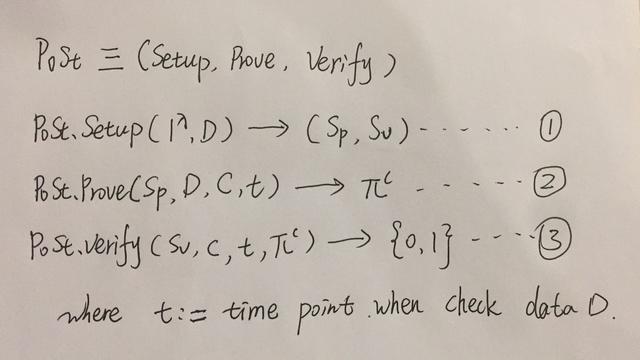 PoSt ≡ (Setup, Prove, Verify)
PoSt.Setup(1^λ, D) → (Sp, Sv) ------ ①
PoSt.Prove(Sp, D, C, t) → π^c ------ ②
PoSt.Verify(Sv, C, t, π^c) → {0,1} ---- ③
where t := time point when check data D.